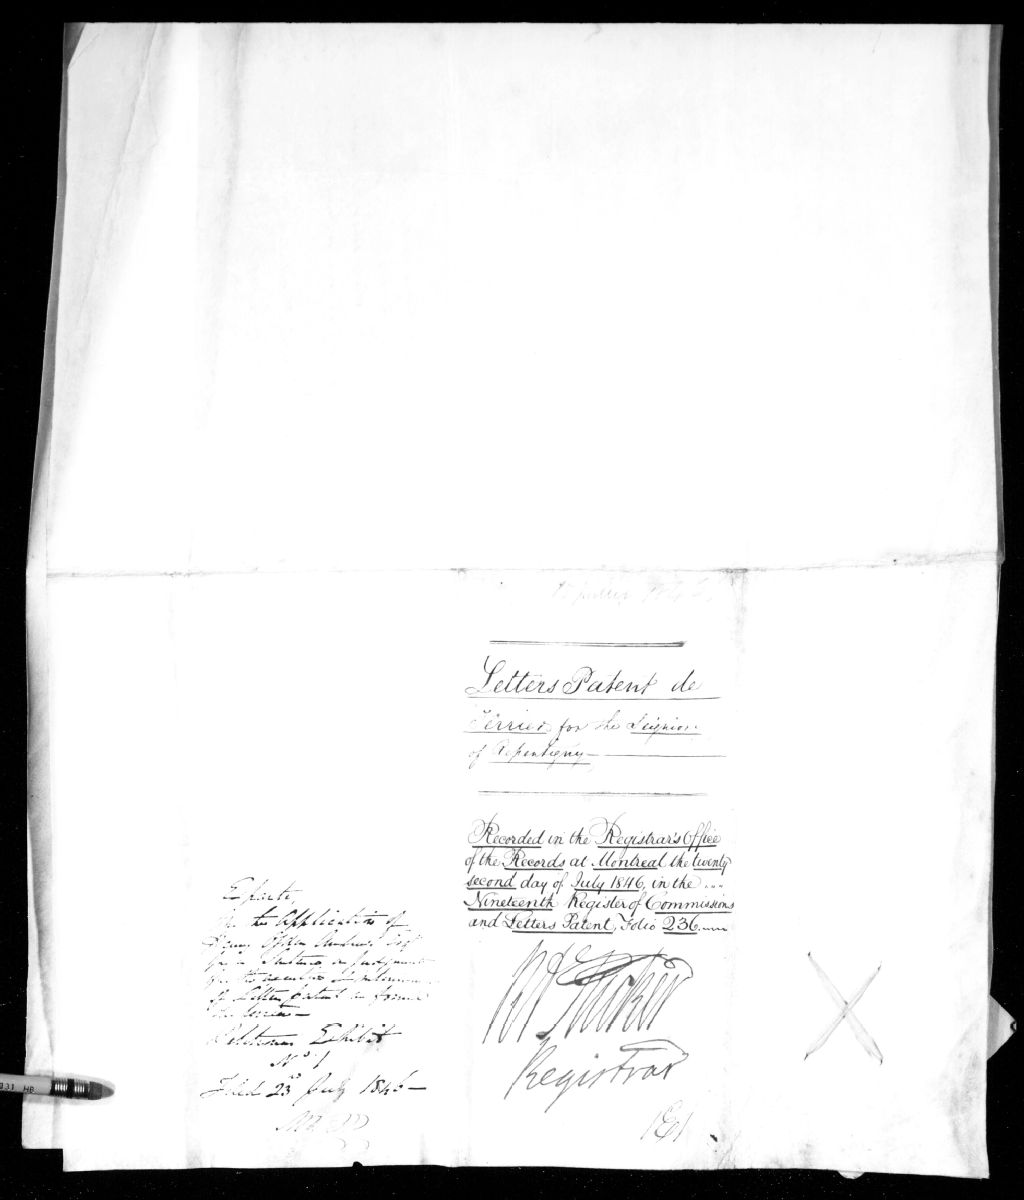 Letters Patent de
Terrier for the Seignior
of Repentigny
Recorded in the Registrar's Office
of the Records at Montreal the twenty
second day of July 1846, in the
Nineteenth Register of Commissions
and Letters Patent, Folio 236
R A Tucker
Registrar
Exparte,
the Application of
for a Sentence or Judgment
of Letters patent in form
de terrier
Petitioner Exhibit
No 1
Filed 23d July 1846
131 HB